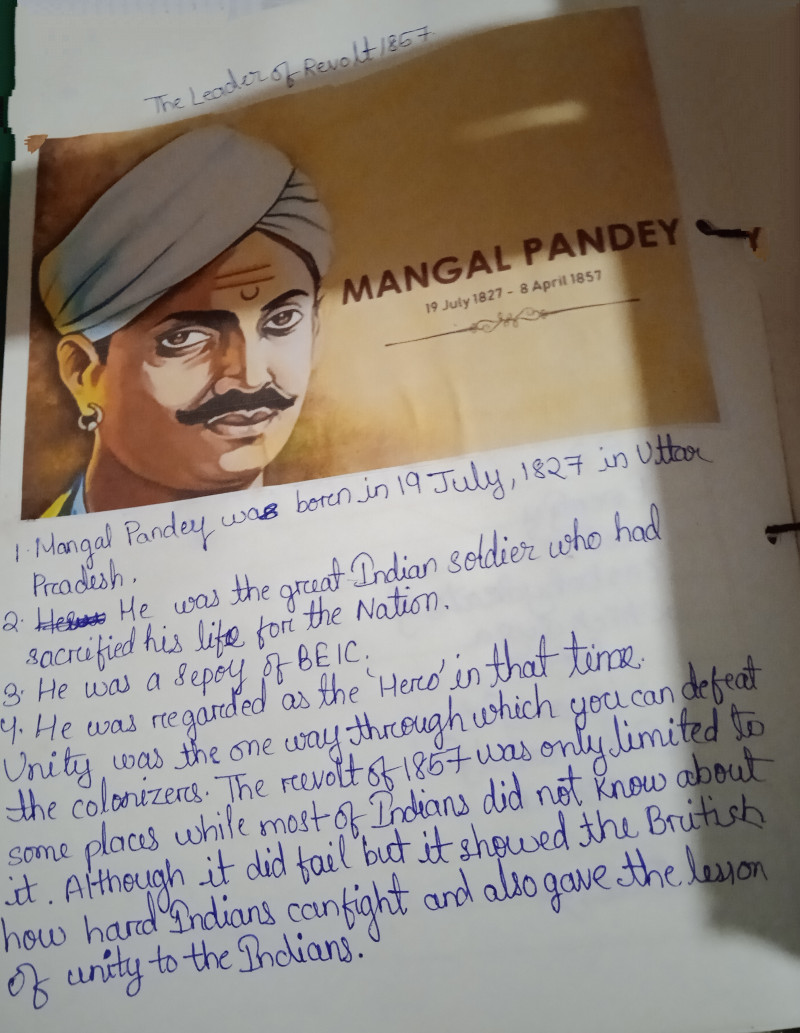 The Leader of Revolt 1857
MANGAL PANDEY
19 July 1827 - 8 April 1857
1. Mangal Pandey was born in 19 July, 1827 in Uttar
Pradesh.
2. He was the great Indian soldier who had
sacrified his life for the Nation.
3. He was a sepoy of BEIC.
4. He was regarded as the 'Hero' in that time.
Unity was the one way through which you can defeat
the colonizers. The revolt of 1857 was only limited to
some places while most of Indians did not know about
it. Although it did fail but it showed the British
how hard Indians can fight and also gave the lesson
of unity to the Indians.